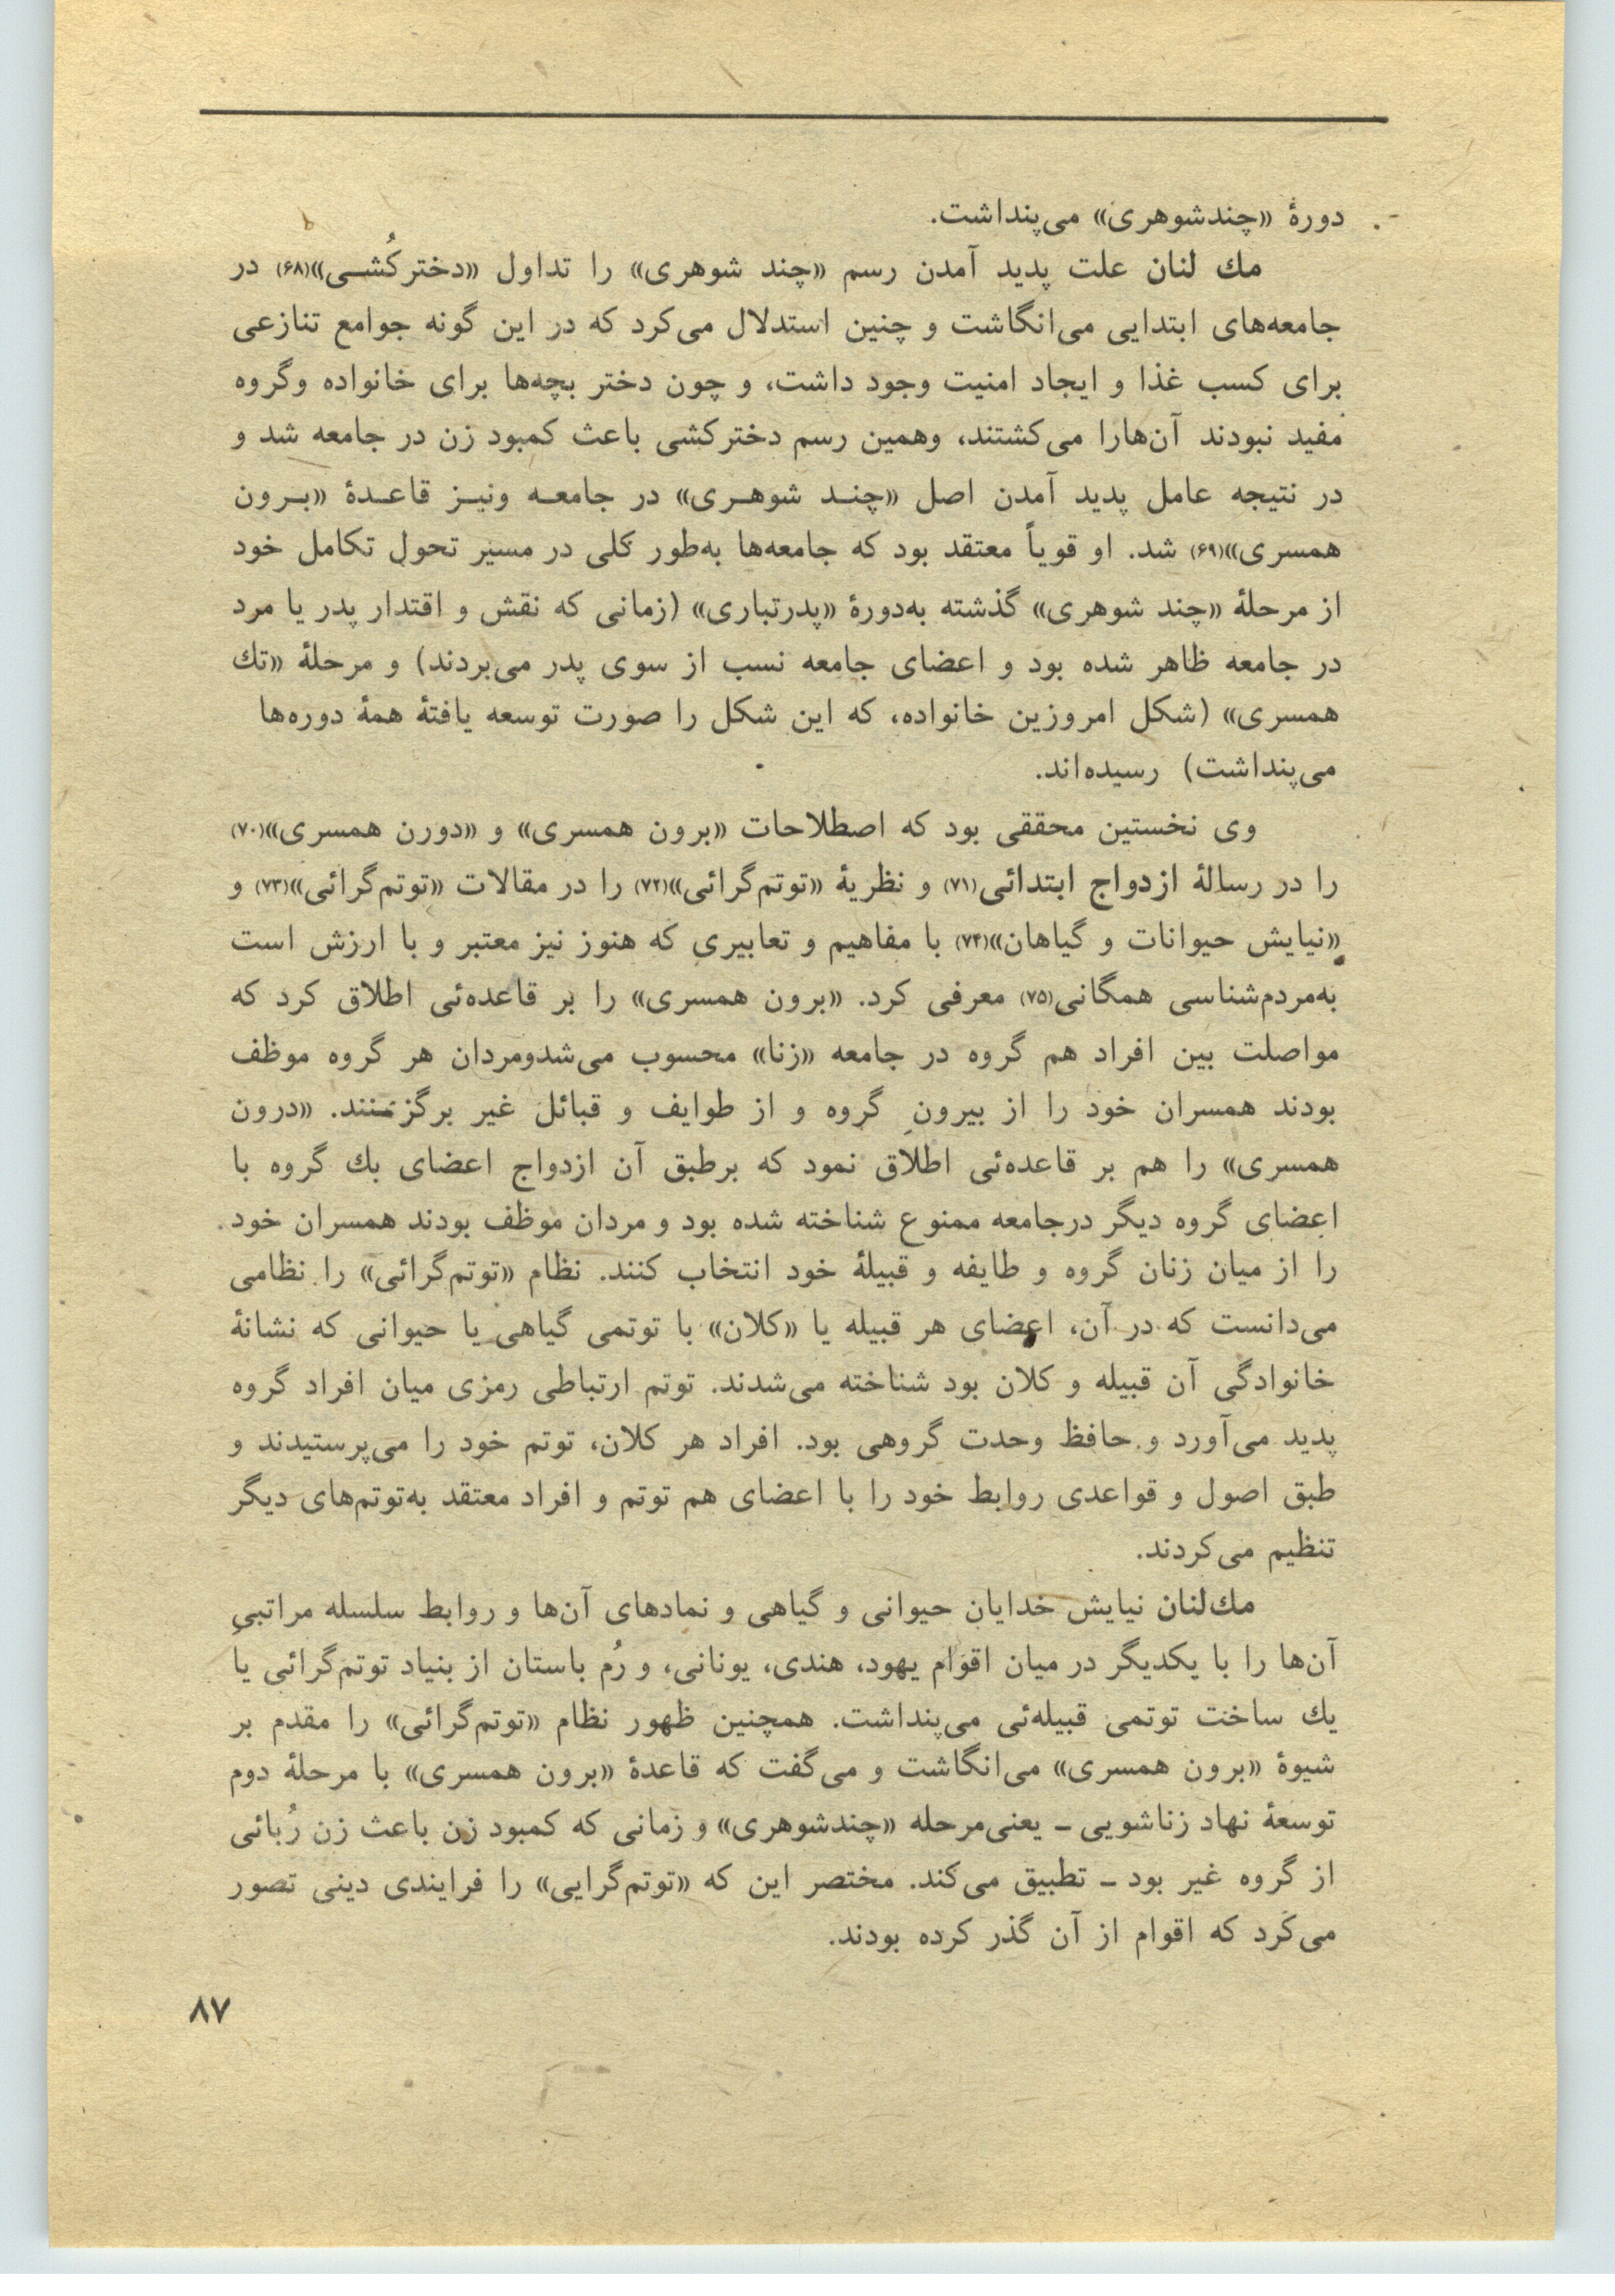 دورهٔ «چندشوهری» می‌پنداشت.
مك لنان علت پدید آمدن رسم «چند شوهری» را تداول «دخترکُشـی»(۶۸) در
جامعه‌های ابتدایی می‌انگاشت و چنین استدلال می‌کرد که در این گونه جوامع تنازعی
برای کسب غذا و ایجاد امنیت وجود داشت، و چون دختر بچه‌ها برای خانواده وگروه
مفید نبودند آن‌هارا می‌کشتند، وهمین رسم دخترکشی باعث کمبود زن در جامعه شد و
در نتیجه عامل پدید آمدن اصل «چنـد شوهـری» در جامعـه ونیـز قاعـدهٔ «بـرون
همسری»(۶۹) شد. او قویاً معتقد بود که جامعه‌ها به‌طور کلی در مسیر تحول تکامل خود
از مرحلهٔ «چند شوهری» گذشته به‌دورهٔ «پدرتباری» (زمانی که نقش و اقتدار پدر یا مرد
در جامعه ظاهر شده بود و اعضای جامعه نسب از سوی پدر می‌بردند) و مرحلهٔ «تك
همسری» (شکل امروزین خانواده، که این شکل را صورت توسعه یافتهٔ همهٔ دوره‌ها
می‌پنداشت) رسیده‌اند.
وی نخستین محققی بود که اصطلاحات «برون همسری» و «دورن همسری»(۷۰)
را در رسالهٔ ازدواج ابتدائی(۷۱) و نظریهٔ «توتم‌گرائی»(۷۲) را در مقالات «توتم‌گرائی»(۷۳) و
«نیایش حیوانات و گیاهان»(۷۴) با مفاهیم و تعابیری که هنوز نیز معتبر و با ارزش است
به‌مردم‌شناسی همگانی(۷۵) معرفی کرد. «برون همسری» را بر قاعده‌ئی اطلاق کرد که
مواصلت بین افراد هم گروه در جامعه «زنا» محسوب می‌شدومردان هر گروه موظف
بودند همسران خود را از بیرون گروه و از طوایف و قبائل غیر برگزینند. «درون
همسری» را هم بر قاعده‌ئی اطلاق نمود که برطبق آن ازدواج اعضای یك گروه با
اعضای گروه دیگر درجامعه ممنوع شناخته شده بود و مردان موظف بودند همسران خود
را از میان زنان گروه و طایفه و قبیلهٔ خود انتخاب کنند. نظام «توتم‌گرائی» را نظامی
می‌دانست که در آن، اعضای هر قبیله یا «کلان» با توتمی گیاهی یا حیوانی که نشانهٔ
خانوادگی آن قبیله و کلان بود شناخته می‌شدند. توتم ارتباطی رمزی میان افراد گروه
پدید می‌آورد و حافظ وحدت گروهی بود. افراد هر کلان، توتم خود را می‌پرستیدند و
طبق اصول و قواعدی روابط خود را با اعضای هم توتم و افراد معتقد به‌توتم‌های دیگر
تنظیم می‌کردند.
مك‌لنان نیایش خدایان حیوانی و گیاهی و نمادهای آن‌ها و روابط سلسله مراتبیِ
آن‌ها را با یکدیگر در میان اقوام یهود، هندی، یونانی، و رُم باستان از بنیاد توتم‌گرائی یا
یك ساخت توتمی قبیله‌ئی می‌پنداشت. همچنین ظهور نظام «توتم‌گرائی» را مقدم بر
شیوهٔ «برون همسری» می‌انگاشت و می‌گفت که قاعدهٔ «برون همسری» با مرحلهٔ دوم
توسعهٔ نهاد زناشویی ـ یعنی‌مرحله «چندشوهری» و زمانی که کمبود زن باعث زن رُبائی
از گروه غیر بود ـ تطبیق می‌کند. مختصر این که «توتم‌گرایی» را فرایندی دینی تصور
می‌کرد که اقوام از آن گذر کرده بودند.
۸۷